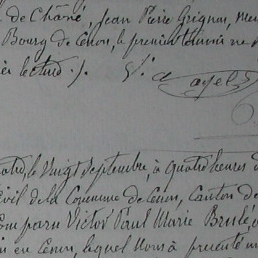 de Chané, Jean Pierre Grignon, 
Bourg de Cenon, le premier témoin ne
lecture ./.
le Vingt Septembre, à quatre heures d
ivil de la Commune de Cenon, Canton de
Comparu Victor Paul Marie Brulé,
en Cenon, lequel nous a présenté un